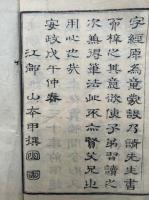 字經原為童蒙設乃請先生書
而梓之其意欲使子弟習讀之
次兼得筆法此不亦賢父兄也
用心也哉
安政戊午仲春
江都 山本甲撰